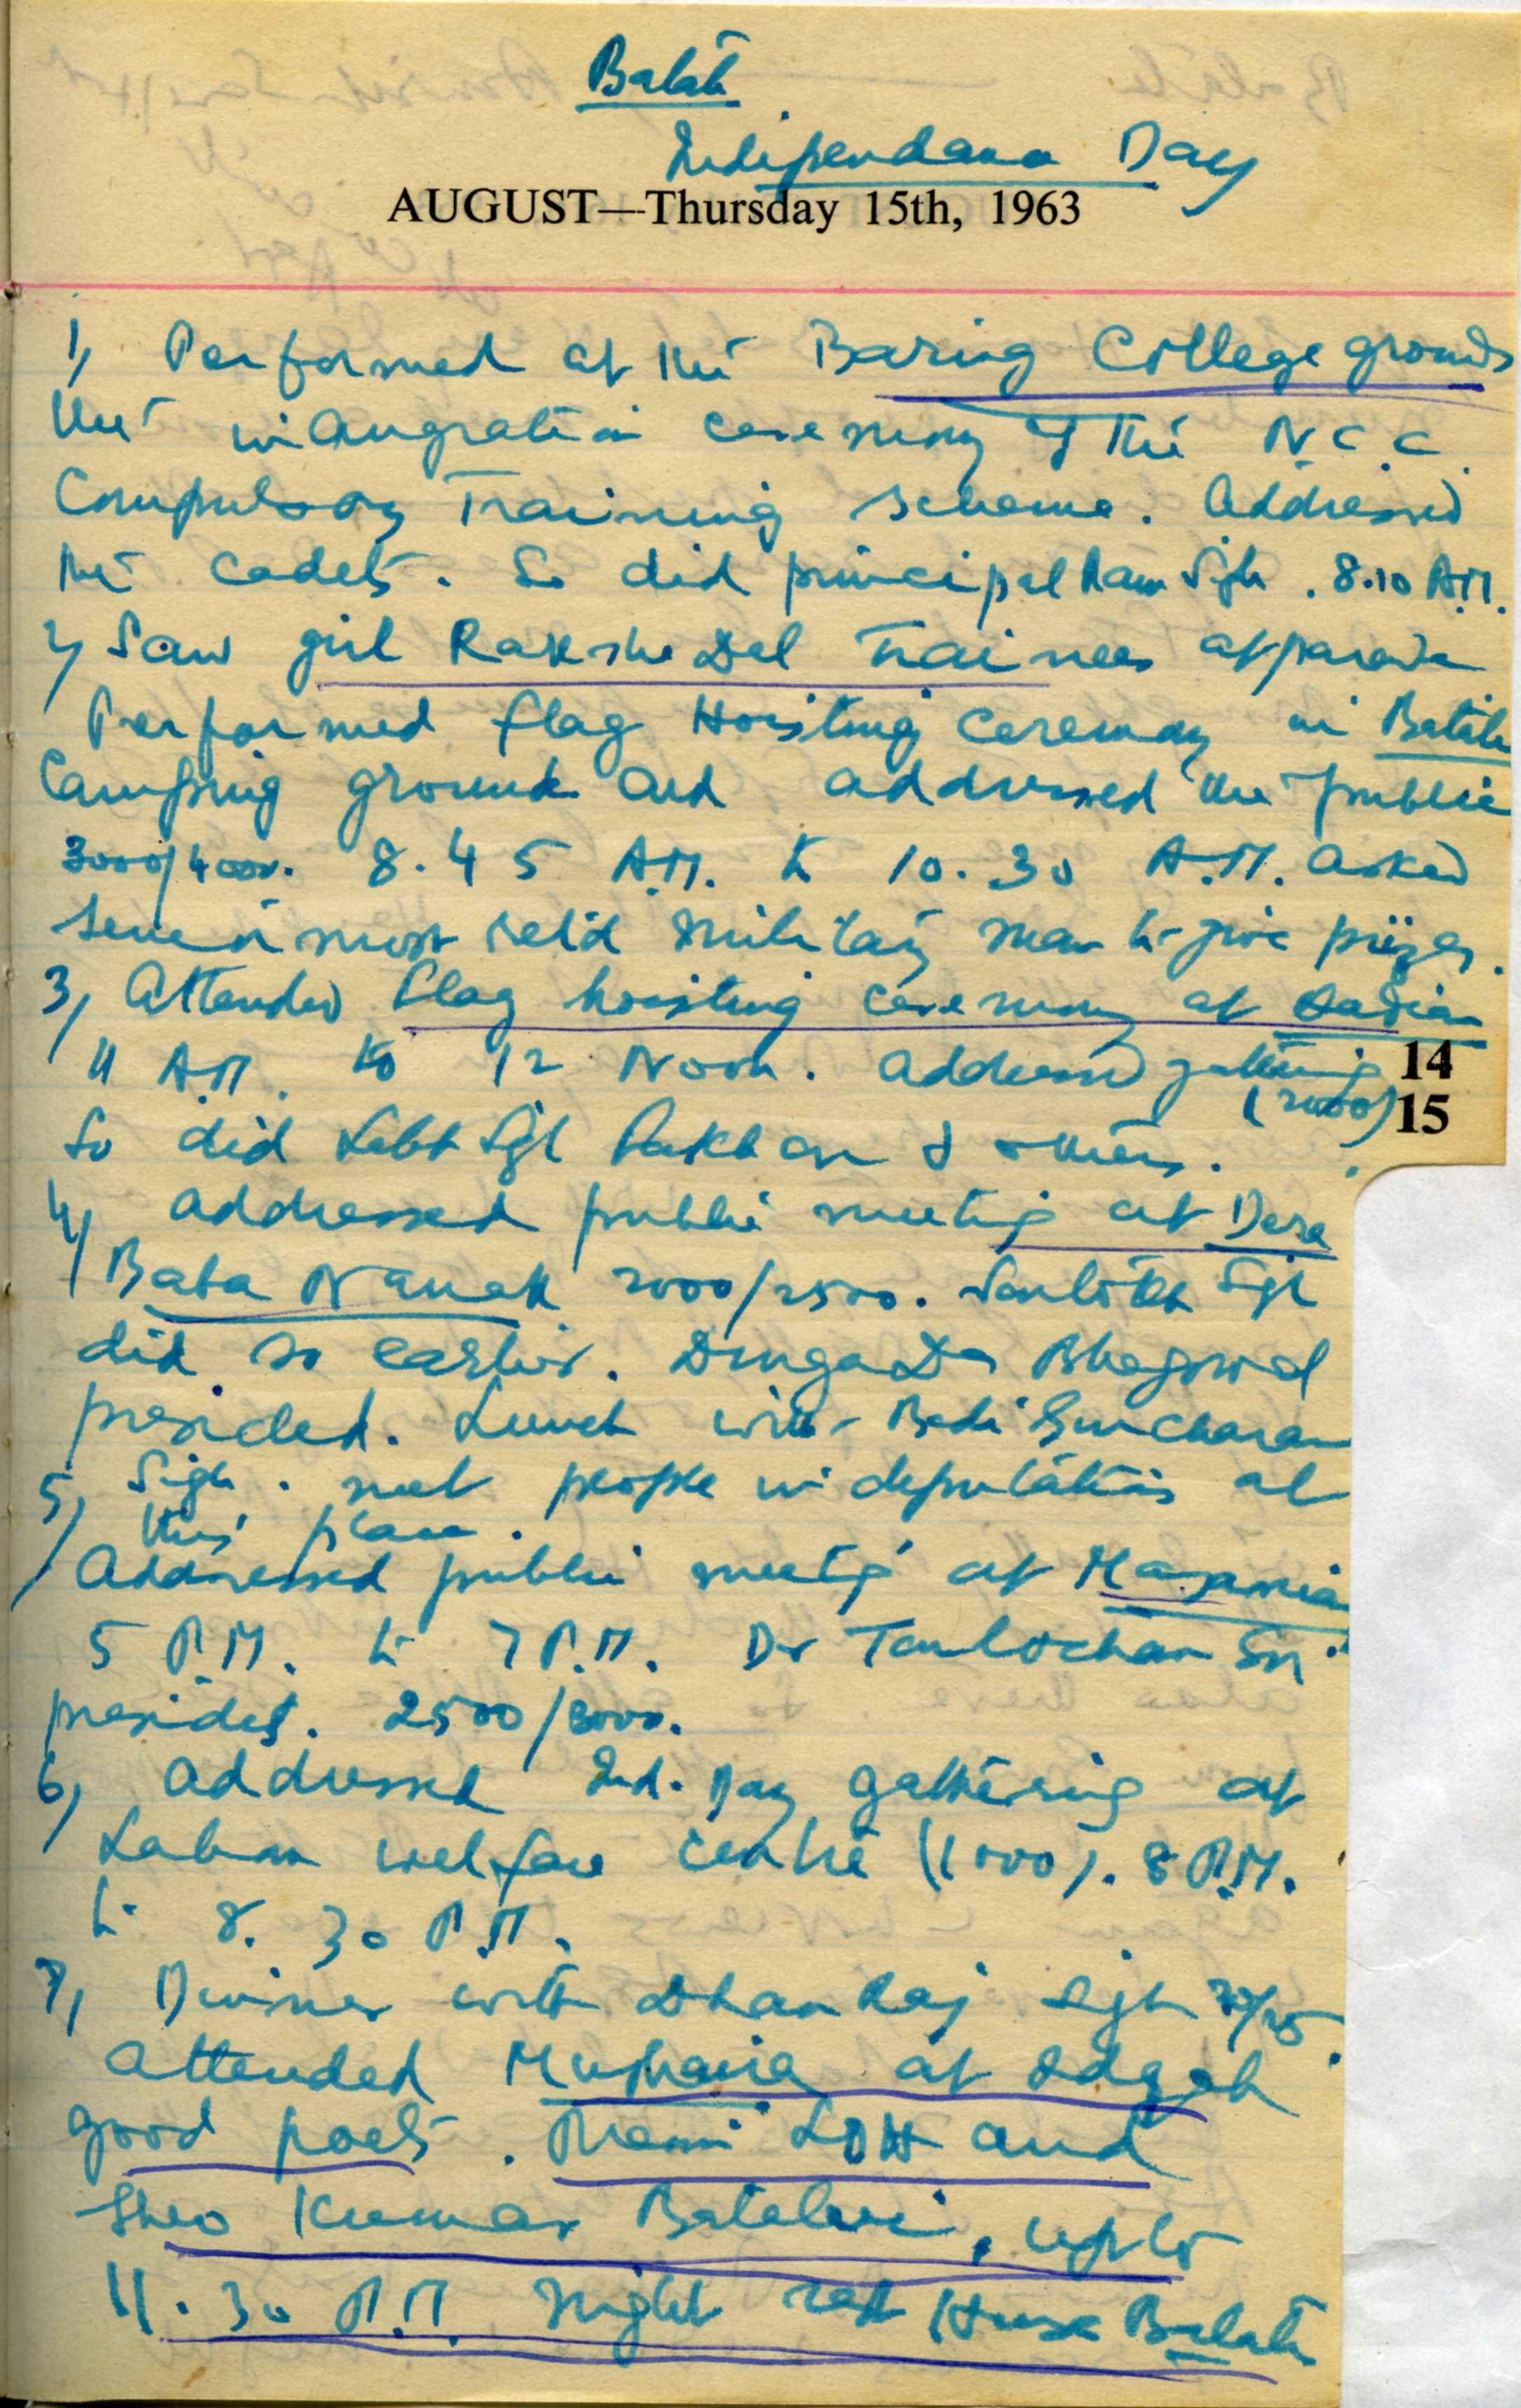 Batala
Independence Day
AUGUST—Thursday 15th, 1963
1, Performed at the Baring College grounds
the inaugration ceremony of the N.C.C.
Compulsory Training scheme. Addressed
the cadets. So did principal Ram Sigh. 8.10 A.M.
2, Saw girl Raksha Dal Trainees at parade
Performed flag Hoisting ceremony in Batala
Camping ground and addressed the public
3000/4000. 8.45 A.M. to 10.30 A.M. asked
senior most retd military man to give prizes.
3, Attended flag hoisting ceremony at Qadian
11 A.M. to 12 Noon. Addressed gathering 14
(2000) 15
So did Sigh & others.
4, addressed public meeting at Dera
Baba Nanak 2000/2500. Santokh Sigh
did so earlier. Durga Das Bhagowal
presided. Lunch with Bedi Gurcharan
Sigh. met people in deputations at
this place.
5, Addressed public meeting at
5 P.M. to 7 P.M. Dr Tarlochan Sn.
presided. 2500/3000.
6, addressed Ind. Day gathering at
Labour welfare centre (1000). 8 P.M.
to 8.30 P.M.
7, Dinner with Dhanraj Sigh 20/25.
attended Mushaira at Idgah
good poets. and
Sheo Kumar Batalvi, upto
11.30 P.M. Night rest House Batala